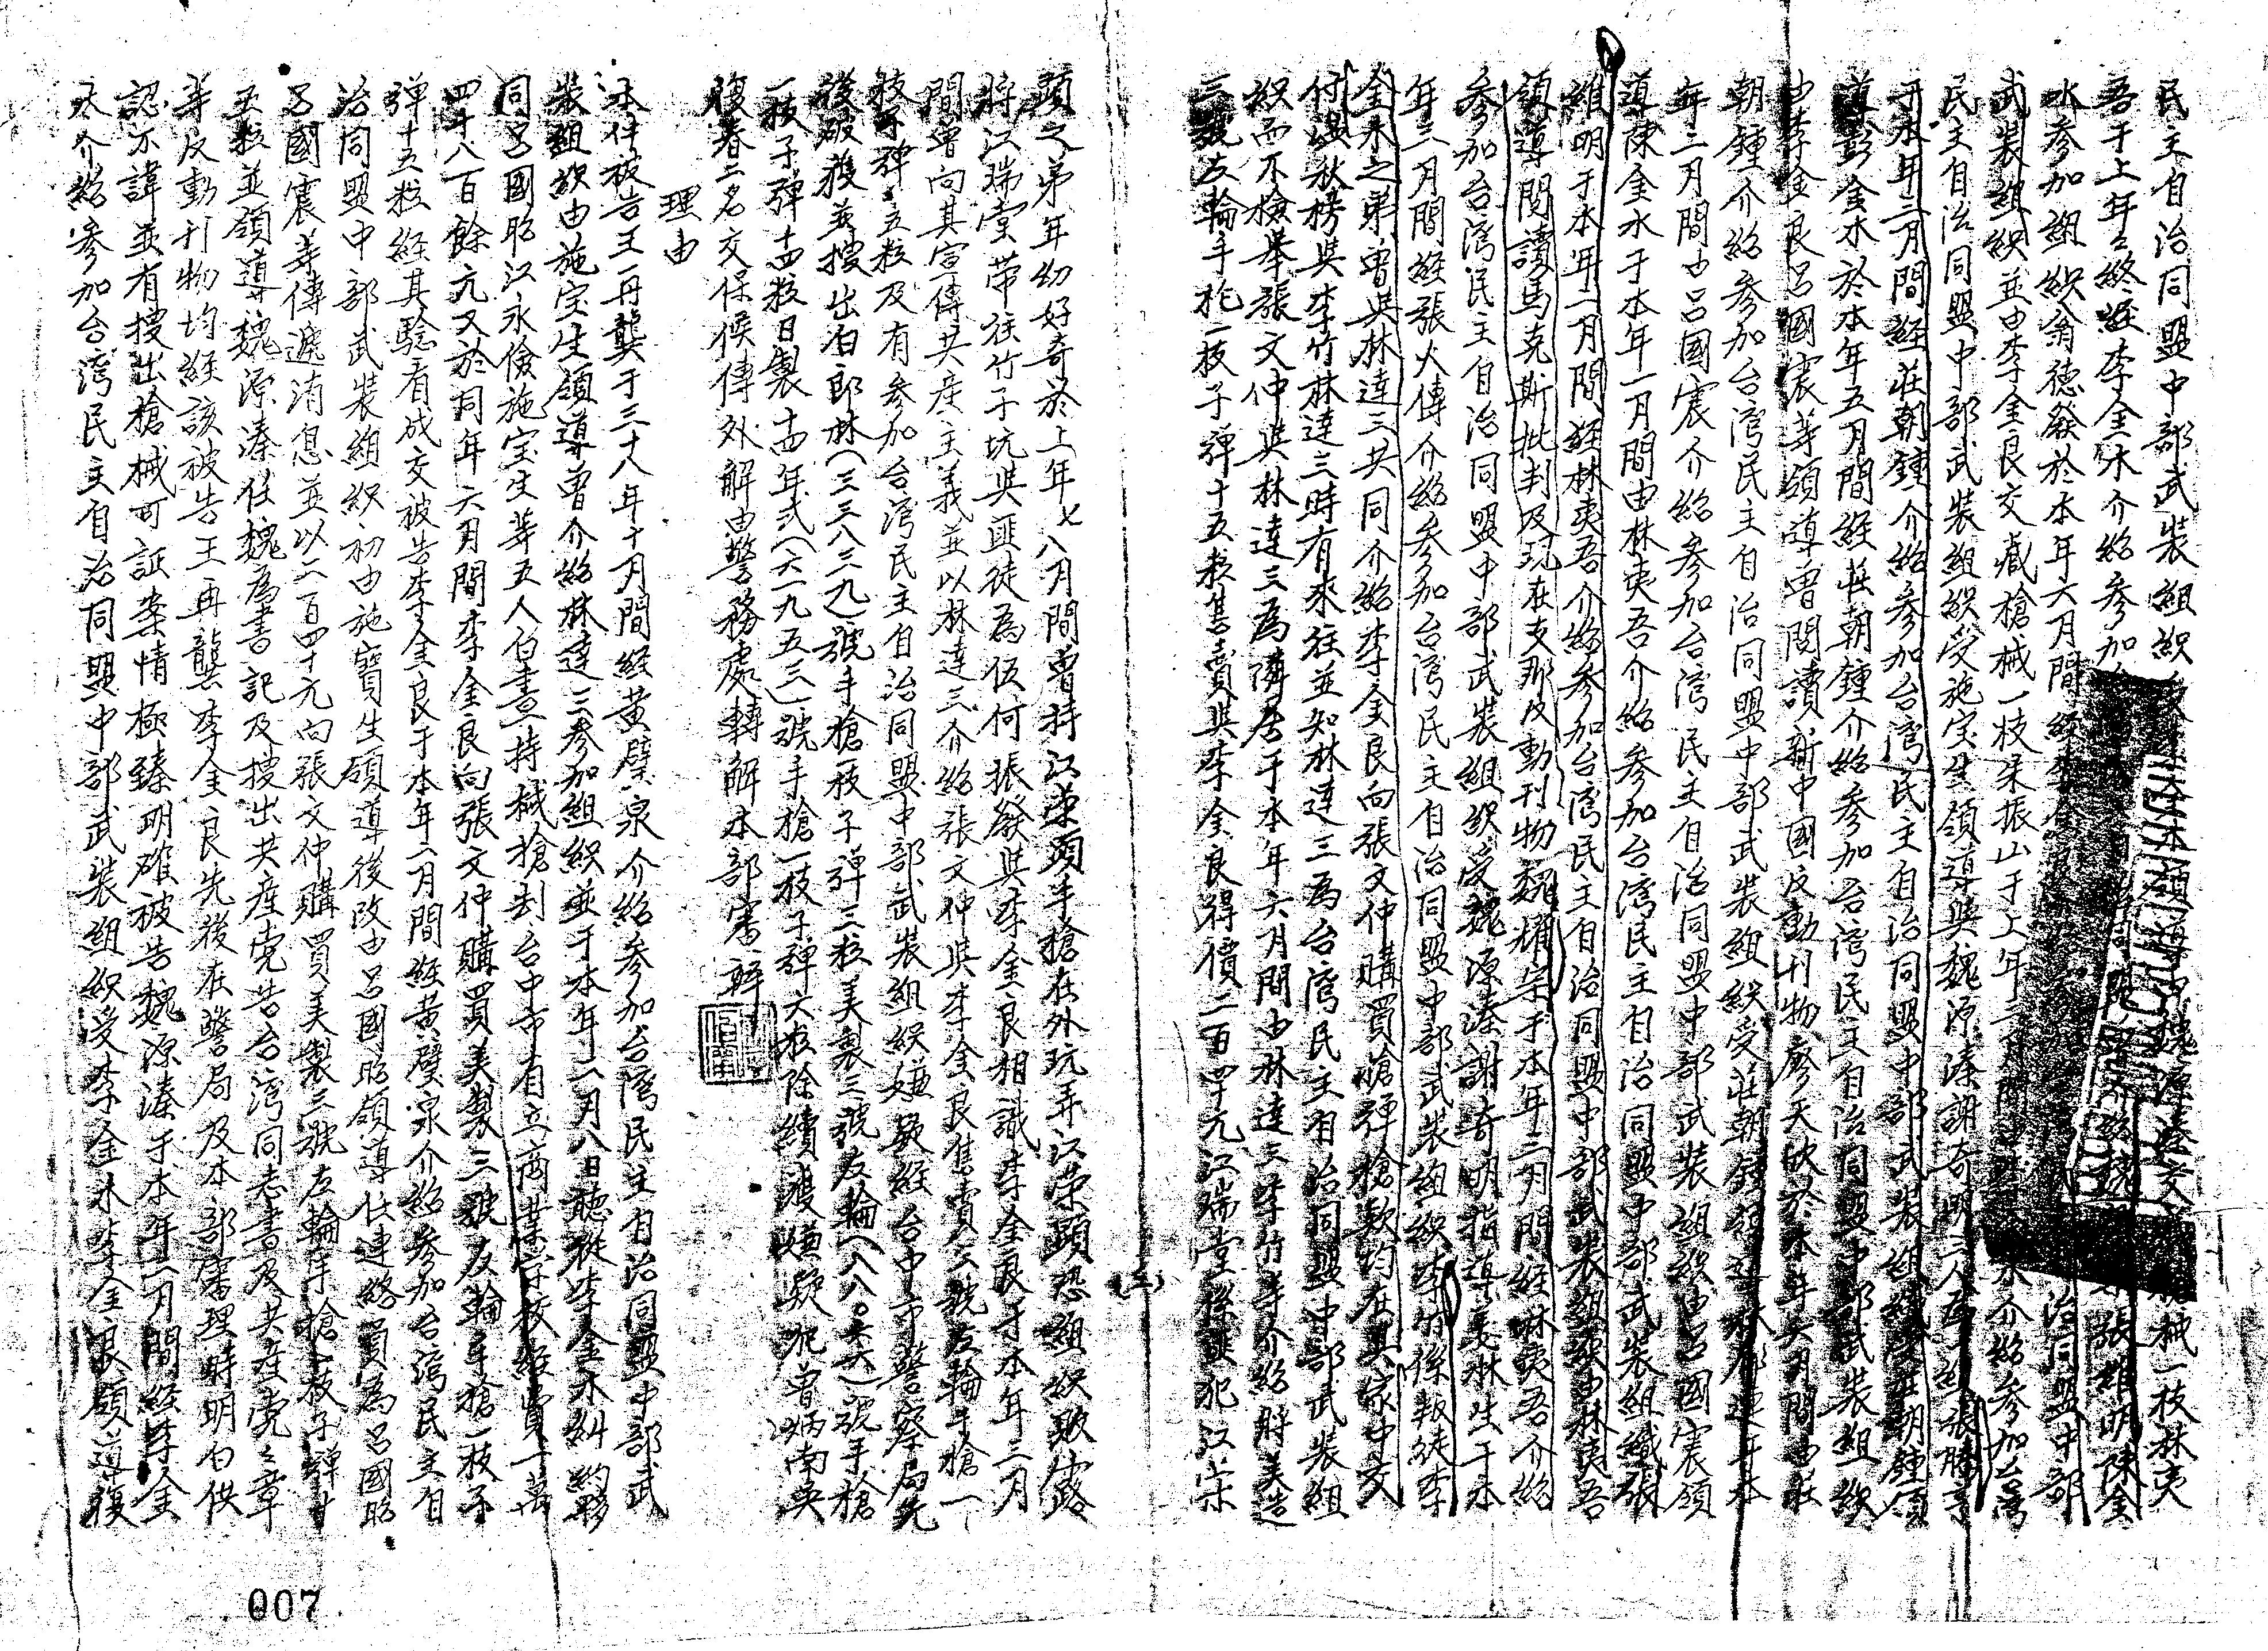 民主自治同盟中部武裝組織
械一枝林夷
吾于上年年終經李金木介紹參加
張維明陳金
水參加組織翁德發於本年六月間經李金良
治同盟中部
武裝組織並由李金良交藏槍械一枝呆振山于上年二月間
介紹參加台灣
民主自治同盟中部武裝組織受施宝生領導與魏源溱謝奇明三人為一組張勝亨
于本年二月間經莊朝鍾介紹參加台灣民主自治同盟中部武裝組織受莊朝鍾領
導彭金水於本年五月間經莊朝鍾介紹參加台灣民主自治同盟中部武裝組織
由李金良呂國震等領導曾閱讀新中國反動刊物廖天欣於本年六月間由莊
朝鍾介紹參加台灣民主自治同盟中部武裝組織受莊朝鍾領導
于本
年二月間由呂國震介紹參加台灣民主自治同盟中部武裝組織由呂國震領
導陳金水于本年一月間由林夷吾介紹參加台灣民主自治同盟中部武裝組織張
維明于本年二月間經林夷吾介紹參加台灣民主自治同盟中部武裝組織由林夷吾
領導閱讀馬克斯批判及現在支那反動刊物魏耀宗于本年二月間經林夷吾介紹
參加台灣民主自治同盟中部武裝組織受魏源溱謝奇明指導姜林生于本
年三月間經張火傳介紹參加台灣民主自治同盟中部武裝組織李竹係叛徒李
金木之弟曾與林達三共同介紹李金良向張文仲購買槍彈槍款均在其家中交
付温秋榜與李竹林達三時有來往並知林達三為台灣民主自治同盟中部武裝組
織而不檢舉張文仲與林達三為隣居于本年六月間由林達三李竹等介紹將美造
三號左輪手枪一枝子彈十五粒售賣與李金良得價二百四十元江瑞堂係匪犯江宗
顕之弟年幼好奇於上年七八月間曾持江荣顕手槍在外玩弄江荣顕恐組織敗露
將江瑞堂带往竹子坑與匪徒為伍何振發與李金良相識李金良于本年三月
間曾向其宣傳共產主義並以林達三介紹張文仲與李金良售賣三號左輪手槍一
枝子彈五粒及有參加台灣民主自治同盟中部武裝組織嫌疑經台中市警察局先
後破獲並搜出伯郎林(三三八三一九)號手槍一枝子彈三粒美製三號左輪(八八〇六六)號手槍
一枝子彈十四粒日製十四年式(六一九五三)號手槍一枝子彈六粒除續獲嫌疑犯曾炳南與
復春二名交保候傳外解由警務處轉解本部審辦
理由
本件被告王再龔于三十八年十月間經黃璧泉介紹參加台灣民主自治同盟中部武
裝組織由施宝生領導曾介紹林達三參加組織並于本年六月八日聽從李金木糾約夥
同呂國昭江永儉施宝生等五人白晝持械搶刧台中市有立商業学校經費一萬
四千八百餘元又於同年六月間李金良向張文仲購買美製三號左輪手槍一枝子
彈十五粒經其驗看成交被告李金良于本年二月間經黃璧泉介紹參加台灣民主自
治同盟中部武裝組織初由施寶生領導後改由呂國昭領導任連絡員為呂國昭
呂國震等傳遞消息並以二百四十元向張文仲購買美製三號左輪手槍一枝子彈十
五粒並領導魏源溱任魏為書記及搜出共產党告台灣同志書及共產党党章
等反動刊物均經該被告王再龔李金良先後在警局及本部審理時明白供
認不諱並有搜出槍械可証案情極臻明確被告魏源溱于本年二月間經李金
木介紹參加台灣民主自治同盟中部武裝組織受李金木李金良領導復
(二)
007